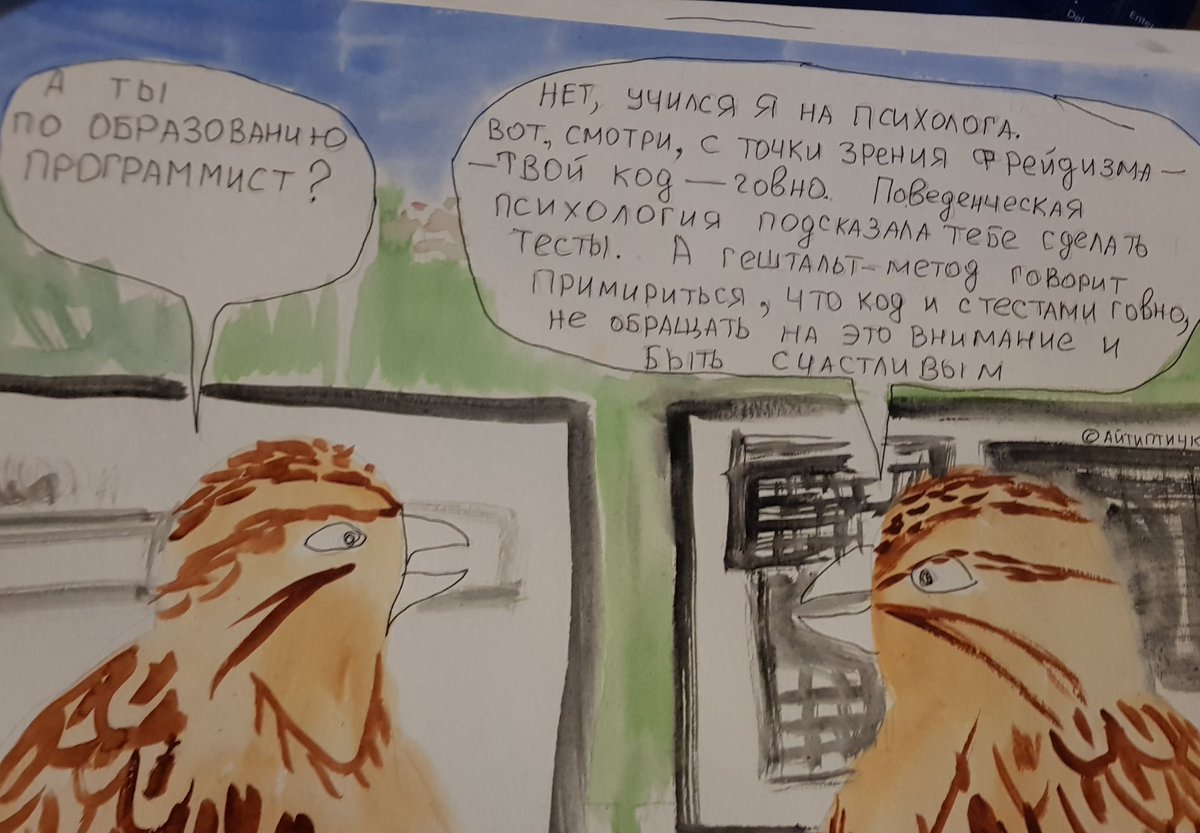 А ТЫ
ПО ОБРАЗОВАНИЮ
ПРОГРАММИСТ?
НЕТ, УЧИЛСЯ Я НА ПСИХОЛОГА.
ВОТ, СМОТРИ, С ТОЧКИ ЗРЕНИЯ ФРЕЙДИЗМА —
—ТВОЙ КОД — ГОВНО. ПОВЕДЕНЧЕСКАЯ
ПСИХОЛОГИЯ ПОДСКАЗАЛА ТЕБЕ СДЕЛАТЬ
ТЕСТЫ. А ГЕШТАЛЬТ-МЕТОД ГОВОРИТ
ПРИМИРИТЬСЯ, ЧТО КОД И С ТЕСТАМИ ГОВНО,
НЕ ОБРАЩАТЬ НА ЭТО ВНИМАНИЕ И
БЫТЬ СЧАСТЛИВЫМ
©АЙТИПТИЧК
Del
Enter